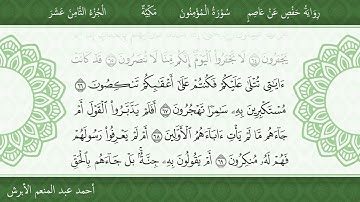 رِوَايَةُ حَفْصٍ عَنْ عَاصِمٍ سُورَةُ الْمُؤْمِنُونَ مَكِّيَّةٌ الْجُزْءُ الثَّامِنُ عَشَرَ
يَجْـَٔرُونَ ٦٤ لَا تَجْـَٔرُوا۟ ٱلْيَوْمَ إِنَّكُم مِّنَّا لَا تُنصَرُونَ ٦٥ قَدْ كَانَتْ
ءَايَـٰتِى تُتْلَىٰ عَلَيْكُمْ فَكُنتُمْ عَلَىٰٓ أَعْقَـٰبِكُمْ تَنكِصُونَ ٦٦
مُسْتَكْبِرِينَ بِهِۦ سَـٰمِرًا تَهْجُرُونَ ٦٧ أَفَلَمْ يَدَّبَّرُوا۟ ٱلْقَوْلَ أَمْ
جَآءَهُم مَّا لَمْ يَأْتِ ءَابَآءَهُمُ ٱلْأَوَّلِينَ ٦٨ أَمْ لَمْ يَعْرِفُوا۟ رَسُولَهُمْ
فَهُمْ لَهُۥ مُنكِرُونَ ٦٩ أَمْ يَقُولُونَ بِهِۦ جِنَّةٌۢ ۚ بَلْ جَآءَهُم بِٱلْحَقِّ
أحمد عبد المنعم الأبرش